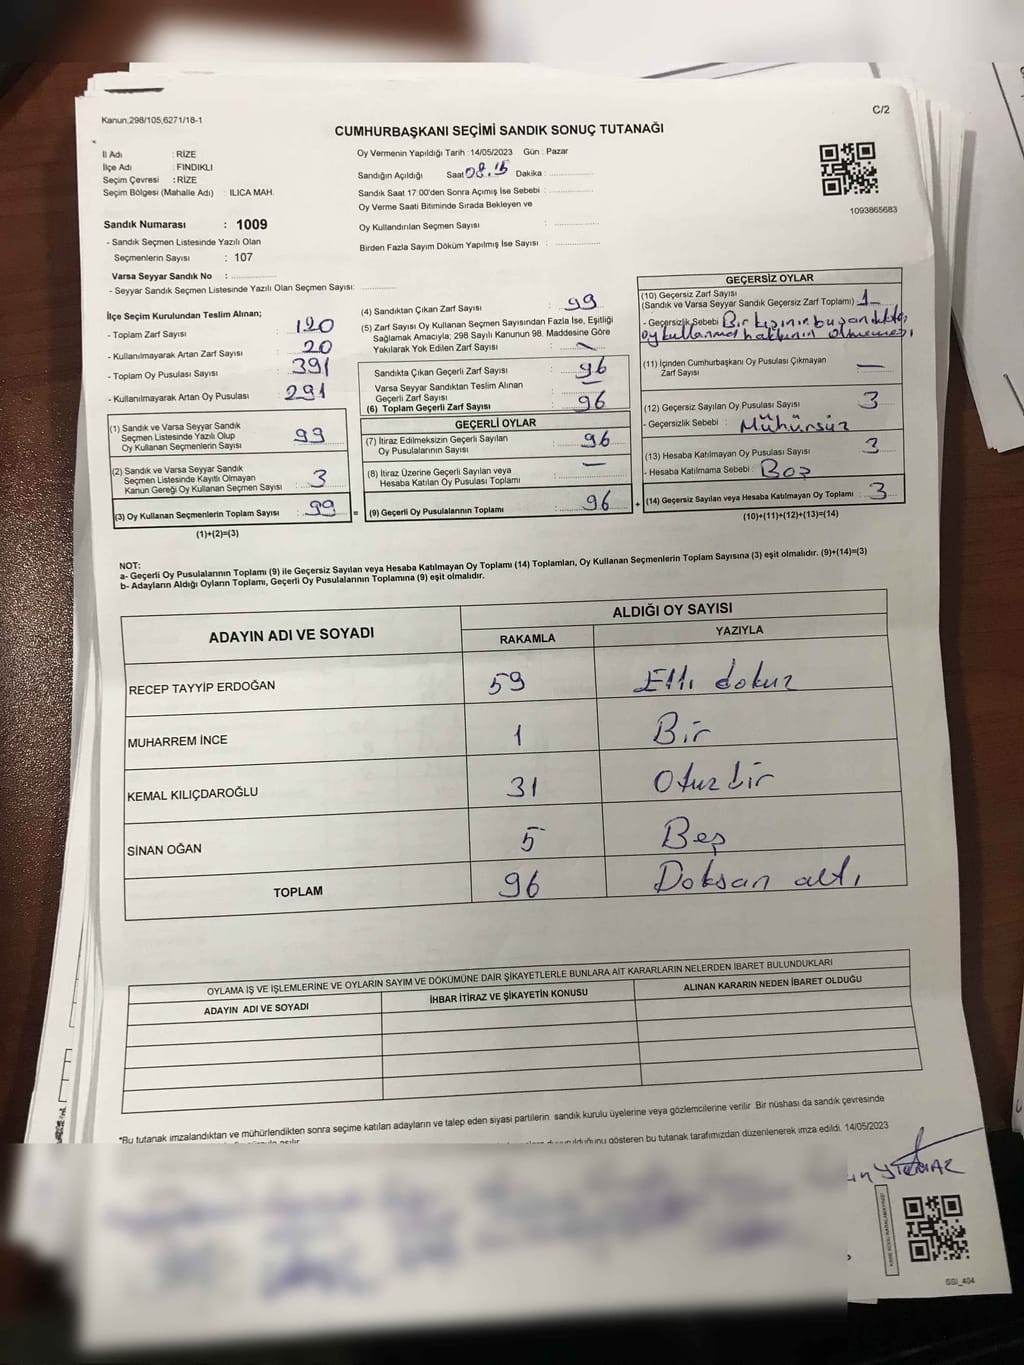 Kanun,298/105,6271/18-1
C/2
CUMHURBAŞKANI SEÇİMİ SANDIK SONUÇ TUTANAĞI
İl Adı : RİZE
İlçe Adı : FINDIKLI
Seçim Çevresi : RİZE
Seçim Bölgesi (Mahalle Adı) : ILICA MAH.
Sandık Numarası : 1009
- Sandık Seçmen Listesinde Yazılı Olan
Seçmenlerin Sayısı : 107
Varsa Seyyar Sandık No :
- Seyyar Sandık Seçmen Listesinde Yazılı Olan Seçmen Sayısı:
Oy Vermenin Yapıldığı Tarih : 14/05/2023 Gün : Pazar
Sandığın Açıldığı Saat 08.15 Dakika :
Sandık Saat 17:00'den Sonra Açımış İse Sebebi :
Oy Verme Saati Bitiminde Sırada Bekleyen ve
Oy Kullandırılan Seçmen Sayısı :
Birden Fazla Sayım Döküm Yapılmış İse Sayısı :
1093865683
İlçe Seçim Kurulundan Teslim Alınan;
- Toplam Zarf Sayısı : 120
- Kullanılmayarak Artan Zarf Sayısı : 20
- Toplam Oy Pusulası Sayısı : 391
- Kullanılmayarak Artan Oy Pusulası : 291
(1) Sandık ve Varsa Seyyar Sandık
Seçmen Listesinde Yazılı Olup
Oy Kullanan Seçmenlerin Sayısı : 99
(2) Sandık ve Varsa Seyyar Sandık
Seçmen Listesinde Kayıtlı Olmayan
Kanun Gereği Oy Kullanan Seçmen Sayısı : 3
(3) Oy Kullanan Seçmenlerin Toplam Sayısı : 99
(1)+(2)=(3)
(4) Sandıktan Çıkan Zarf Sayısı : 99
(5) Zarf Sayısı Oy Kullanan Seçmen Sayısından Fazla İse, Eşitliği
Sağlamak Amacıyla; 298 Sayılı Kanunun 98. Maddesine Göre
Yakılarak Yok Edilen Zarf Sayısı : -
Sandıkta Çıkan Geçerli Zarf Sayısı : 96
Varsa Seyyar Sandıktan Teslim Alınan
Geçerli Zarf Sayısı : -
(6) Toplam Geçerli Zarf Sayısı : 96
GEÇERLİ OYLAR
(7) İtiraz Edilmeksizin Geçerli Sayılan
Oy Pusulalarının Sayısı : 96
(8) İtiraz Üzerine Geçerli Sayılan veya
Hesaba Katılan Oy Pusulası Toplamı : -
= (9) Geçerli Oy Pusulalarının Toplamı : 96 +
GEÇERSİZ OYLAR
(10) Geçersiz Zarf Sayısı
(Sandık ve Varsa Seyyar Sandık Geçersiz Zarf Toplamı) : 1-
- Geçersizlik Sebebi : Bir kişinin bu sandıkta
oy kullanma hakkının olmaması
(11) İçinden Cumhurbaşkanı Oy Pusulası Çıkmayan
Zarf Sayısı : -
(12) Geçersiz Sayılan Oy Pusulası Sayısı : 3
- Geçersizlik Sebebi : Mühürsüz
(13) Hesaba Katılmayan Oy Pusulası Sayısı : 3
- Hesaba Katılmama Sebebi : Boş
(14) Geçersiz Sayılan veya Hesaba Katılmayan Oy Toplamı : 3
(10)+(11)+(12)+(13)=(14)
NOT:
a- Geçerli Oy Pusulalarının Toplamı (9) ile Geçersiz Sayılan veya Hesaba Katılmayan Oy Toplamı (14) Toplamları, Oy Kullanan Seçmenlerin Toplam Sayısına (3) eşit olmalıdır. (9)+(14)=(3)
b- Adayların Aldığı Oyların Toplamı, Geçerli Oy Pusulalarının Toplamına (9) eşit olmalıdır.
ADAYIN ADI VE SOYADI
ALDIĞI OY SAYISI
RAKAMLA YAZIYLA
RECEP TAYYİP ERDOĞAN 59 Elli dokuz
MUHARREM İNCE 1 Bir
KEMAL KILIÇDAROĞLU 31 Otuzbir
SİNAN OĞAN 5 Beş
TOPLAM 96 Doksan altı
OYLAMA İŞ VE İŞLEMLERİNE VE OYLARIN SAYIM VE DÖKÜMÜNE DAİR ŞİKAYETLERLE BUNLARA AİT KARARLARIN NELERDEN İBARET BULUNDUKLARI
ADAYIN ADI VE SOYADI İHBAR İTİRAZ VE ŞİKAYETİN KONUSU ALINAN KARARIN NEDEN İBARET OLDUĞU
*Bu tutanak imzalandıktan ve mühürlendikten sonra seçime katılan adayların ve talep eden siyasi partilerin sandık kurulu üyelerine veya gözlemcilerine verilir. Bir nüshası da sandık çevresinde
olduğunu gösteren bu tutanak tarafımızdan düzenlenerek imza edildi. 14/05/2023
YILMAZ
SSI_404